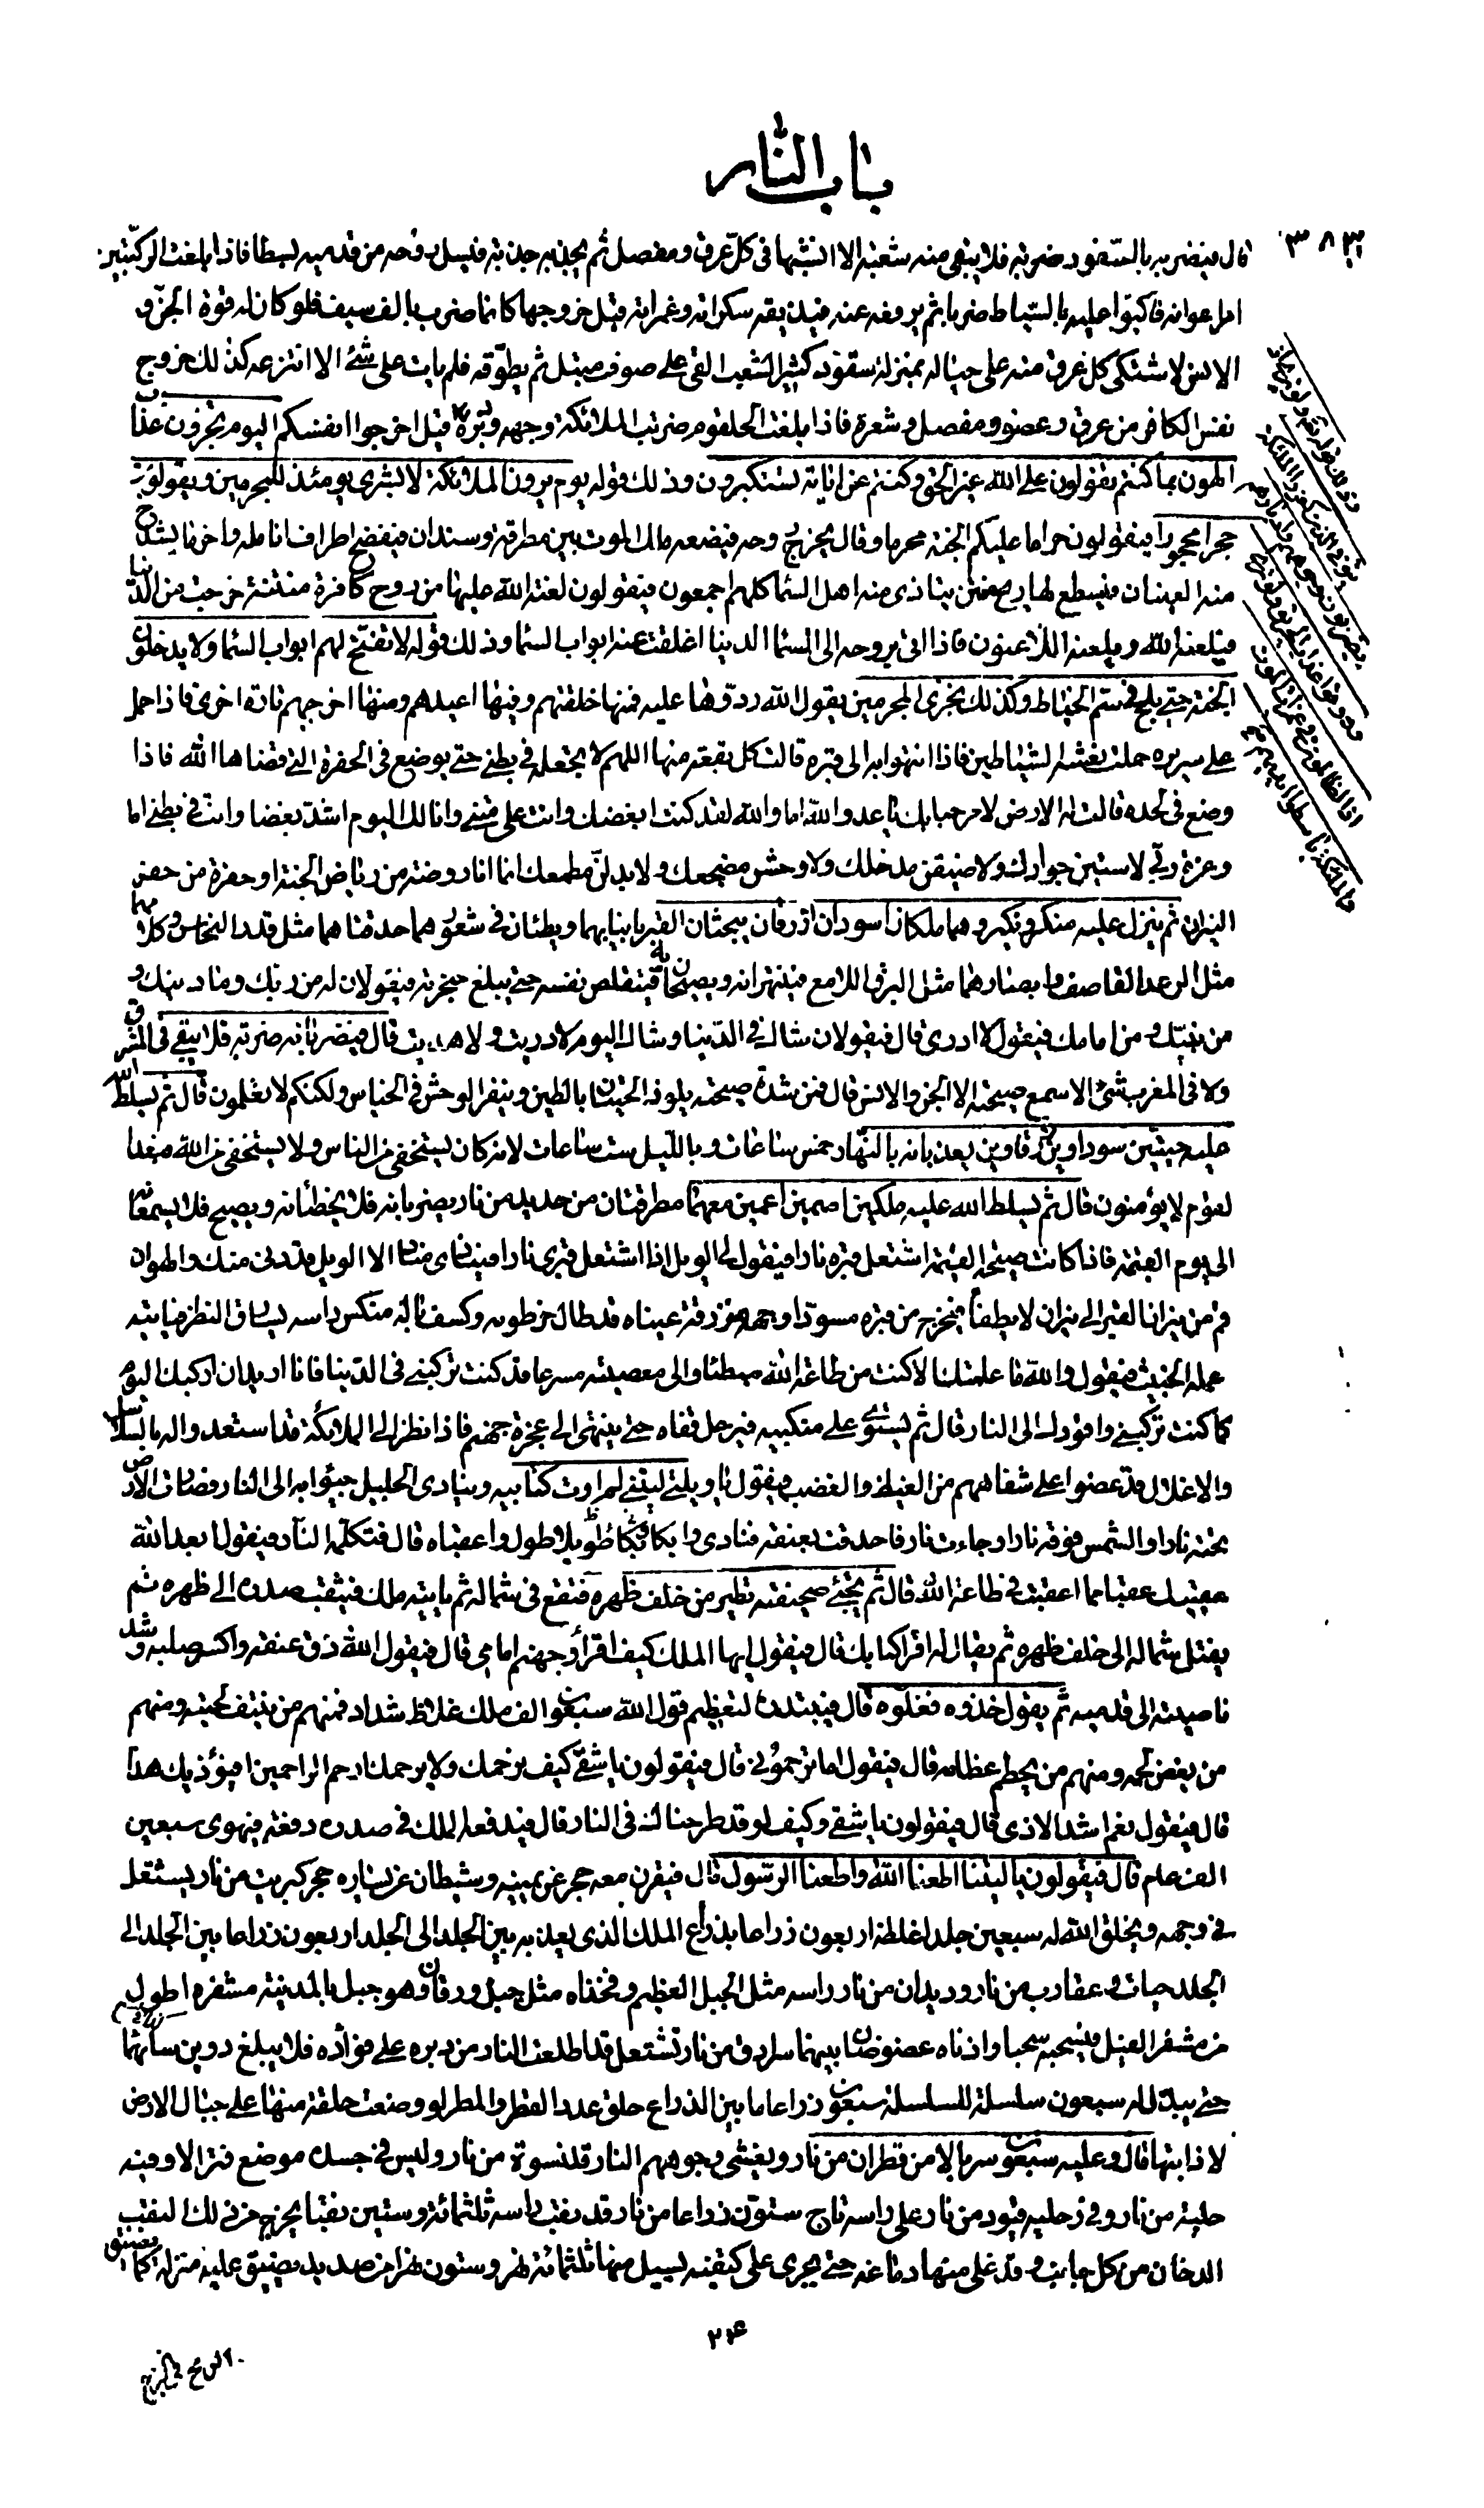 باب النار
٣٨٣
قال فيضربه بالسفود ضربة فلا يبقى منه شعبة الا انشبها فى كل عرق ومفصل ثم يجذبه جذبة فيسل روحه من قدميه بسطا فاذا بلغت الركبتين
امر اعوانه فاكبوا عليه بالسياط ضربا ثم يرفعه عنه فيذيقه سكراته وغمراته قبل خروجها كانما ضرب بالف سيف فلو كان له قوة الجن و
الانس لاشتكى كل عرق منه على حياله بمنزلة سفود كثير الشعب القى على صوف مبتل ثم يطوقه فلم يات على شئ الا انتزعه كذلك خروج
نفس الكافر من عرق وعضو ومفصل وشعرة فاذا بلغت الحلقوم ضربت الملائكة وجهه ودبره وقيل اخرجوا انفسكم اليوم تجزون عذاب
الهون بما كنتم تقولون على الله غير الحق وكنتم عن اياته تستكبرون وذلك قوله يوم يرون الملائكة لا بشرى يومئذ للمجرمين ويقولون
حجرا محجورا فيقولون حراما عليكم الجنة محرما وقال يخرج روحه فيضعه ملك الموت بين مطرقة وسندان فيفضخ اطراف انامله واخر ما يشدخ
منه العينان فيسطع لها ريح منتن يتاذى منه اهل السماء كلهم اجمعون فيقولون لعنة الله عليها من روح كافرة منتنة خرجت من الدنيا
فيلعنه الله ويلعنه اللاعنون فاذا اتى بروحه الى السماء الدنيا اغلقت عنه ابواب السماء وذلك قوله لا تفتح لهم ابواب السماء ولا يدخلون
الجنة حتى يلج فى سم الخياط وكذلك نجزى المجرمين يقول الله ردوها عليه فمنها خلقتهم وفيها اعيدهم ومنها اخرجهم تارة اخرى فاذا حمل
على سريره حملت نعشه الشياطين فاذا انتهوا به الى قبره قالت كل بقعة منها اللهم لا تجعله فى بطنى حتى يوضع فى الحفرة التى قضاها الله فاذا
وضع فى لحده قالت له الارض لا مرحبا بك يا عدو الله اما والله لقد كنت ابغضك وانت على متنى وانا لك اليوم اشد بغضا وانت فى بطنى اما
وعزة ربى لاسيئن جوارك ولاضيقن مدخلك ولاوحشن مضجعك ولابدلن مطعمك انما انا روضة من رياض الجنة او حفرة من حفر
النيران ثم ينزل عليه منكر ونكير وهما ملكان اسودان ازرقان يبحثان القبر بانيابهما ويطئان فى شعورهما حدقتاهما مثل قدر النحاس وكلامهما
مثل الرعد القاصف وابصارهما مثل البرق اللامع فينتهرانه ويصيحان به فيتقلص نفسه حتى يبلغ حنجرته فيقولان له من ربك وما دينك و
من نبيك ومن امامك فيقول لا ادرى قال فيقولان شاك فى الدنيا وشاك اليوم لا دريت ولا هديت قال فيضربانه ضربة فلا يبقى فى المشرق
ولا فى المغرب شئ الا سمع صيحته الا الجن والانس قال فمن شدة صيحته يلوذ الحيتان بالطين وينفر الوحش فى الخياس ولكنكم لا تعلمون قال ثم يسلط الله
عليه حيتين سوداوين زرقاوين يعذبانه بالنهار خمس ساعات وبالليل ست ساعات لانه كان يستخفى من الناس ولا يستخفى من الله فبعدا
لقوم لا يؤمنون قال ثم يسلط الله عليه ملكين اصمين اعميين معهما مطرقتان من حديد من نار يضربانه فلا يخطئانه ويصيح فلا يسمعانه
الى يوم القيمة فاذا كانت صيحة القيمة اشتعل قبره نارا فيقول لى الويل اذا اشتعل قبرى نارا فينادى مناد الا الويل قد دنى منك والهوان
قم من نيران القبر الى نيران لا يطفأ فيخرج من قبره مسودا وجهه مزرقة عيناه قد طال خرطومه وكسف باله منكس راسه يسارق النظر فياتيه
عمله الخبيث فيقول والله ما علمتك الا كنت من طاعة الله مبطئا والى معصيته مسرعا قد كنت تركبنى فى الدنيا فانا اريد ان اركبك اليوم
كما كنت تركبنى واقودك الى النار قال ثم يستوى على منكبيه فيرحل قفاه حتى ينتهى الى عجزة جهنم فاذا نظر الى الملائكة قد استعدوا له بالسلاسل
والاغلال قد عضوا على شفاههم من الغيظ والغضب فيقول يا ويلتى ليتنى لم اوت كتابيه وينادى الجليل جيئوا به الى النار فصارت الارض
تحته نارا والشمس فوقه نارا وجاءت نار فاحدقت بعنقه فنادى وابكا بكاء طويلا طول واعقباه قال فتكلمه النار فيقول ابعد الله
عقبيك عقبا مما اعقبت فى طاعة الله قال ثم تجئ صحيفته تطير من خلف ظهره فتقع فى شماله ثم ياتيه ملك فيثقب صدره الى ظهره ثم
يفتل شماله الى خلف ظهره ثم يقال له اقرا كتابك قال فيقول ايها الملك كيف اقرأ وجهنم امامى قال فيقول الله دق عنقه واكسر صلبه وشد
ناصيته الى قدميه ثم يقول خذوه فغلوه قال فيبتدره لتعظيم قول الله سبعون الف ملك غلاظ شداد فمنهم من ينتف لحيته ومنهم
من يعض لحمه ومنهم من يحطم عظامه قال فيقول اما ترحمونى قال فيقولون يا شقى كيف نرحمك ولا يرحمك ارحم الراحمين افيؤذيك هذا
قال فيقول نعم اشد الاذى قال فيقولون يا شقى وكيف لو قد طرحناك فى النار قال فيدفعه الملك فى صدره دفعة فيهوى سبعين
الف عام قال فيقولون يا ليتنا اطعنا الله واطعنا الرسول قال فيقرن معه حجر عن يمينه وشيطان عن يساره حجر كبريت من نار يشتعل
فى وجهه ويخلق الله له سبعين جلدا غلظه اربعون ذراعا بذراع الملك الذى يعذبه بين الجلد الى الجلد اربعون ذراعا بين الجلد الى
الجلد حيات وعقارب من نار وديدان من نار راسه مثل الجبل العظيم وفخذاه مثل جبل ورقان وهو جبل بالمدينة مشفره اطول
من مشفر الفيل فيسحبه سحبا واذناه عضوضان بينهما سرادق من نار تشتعل قد اطلعت النار من دبره على فؤاده فلا يبلغ دوين سائهما
حتى يبدل له سبعون سلسلة للسلسلة سبعون ذراعا ما بين الذراع حلق عدد القطر والمطر لو وضعت حلقة منها على جبال الارض
لاذابتها قال وعليه سبعون سربالا من قطران من نار ويغشى وجوههم النار قلنسوة من نار وليس فى جسده موضع فتر الا وفيه
حلية من نار وفى رجليه قيود من نار على راسه تاج ستون ذراعا من نار قد نقب راسه ثلثمائة وستين نقبا يخرج من ذلك النقب
الدخان من كل جانب وقد غلى منها دماغه حتى يجرى على كتفيه يسيل منها ثلثمائة نهر وستون نهرا من صديد يضيق عليه منزله كما يضيق
٢٤
الرمح فى الزج